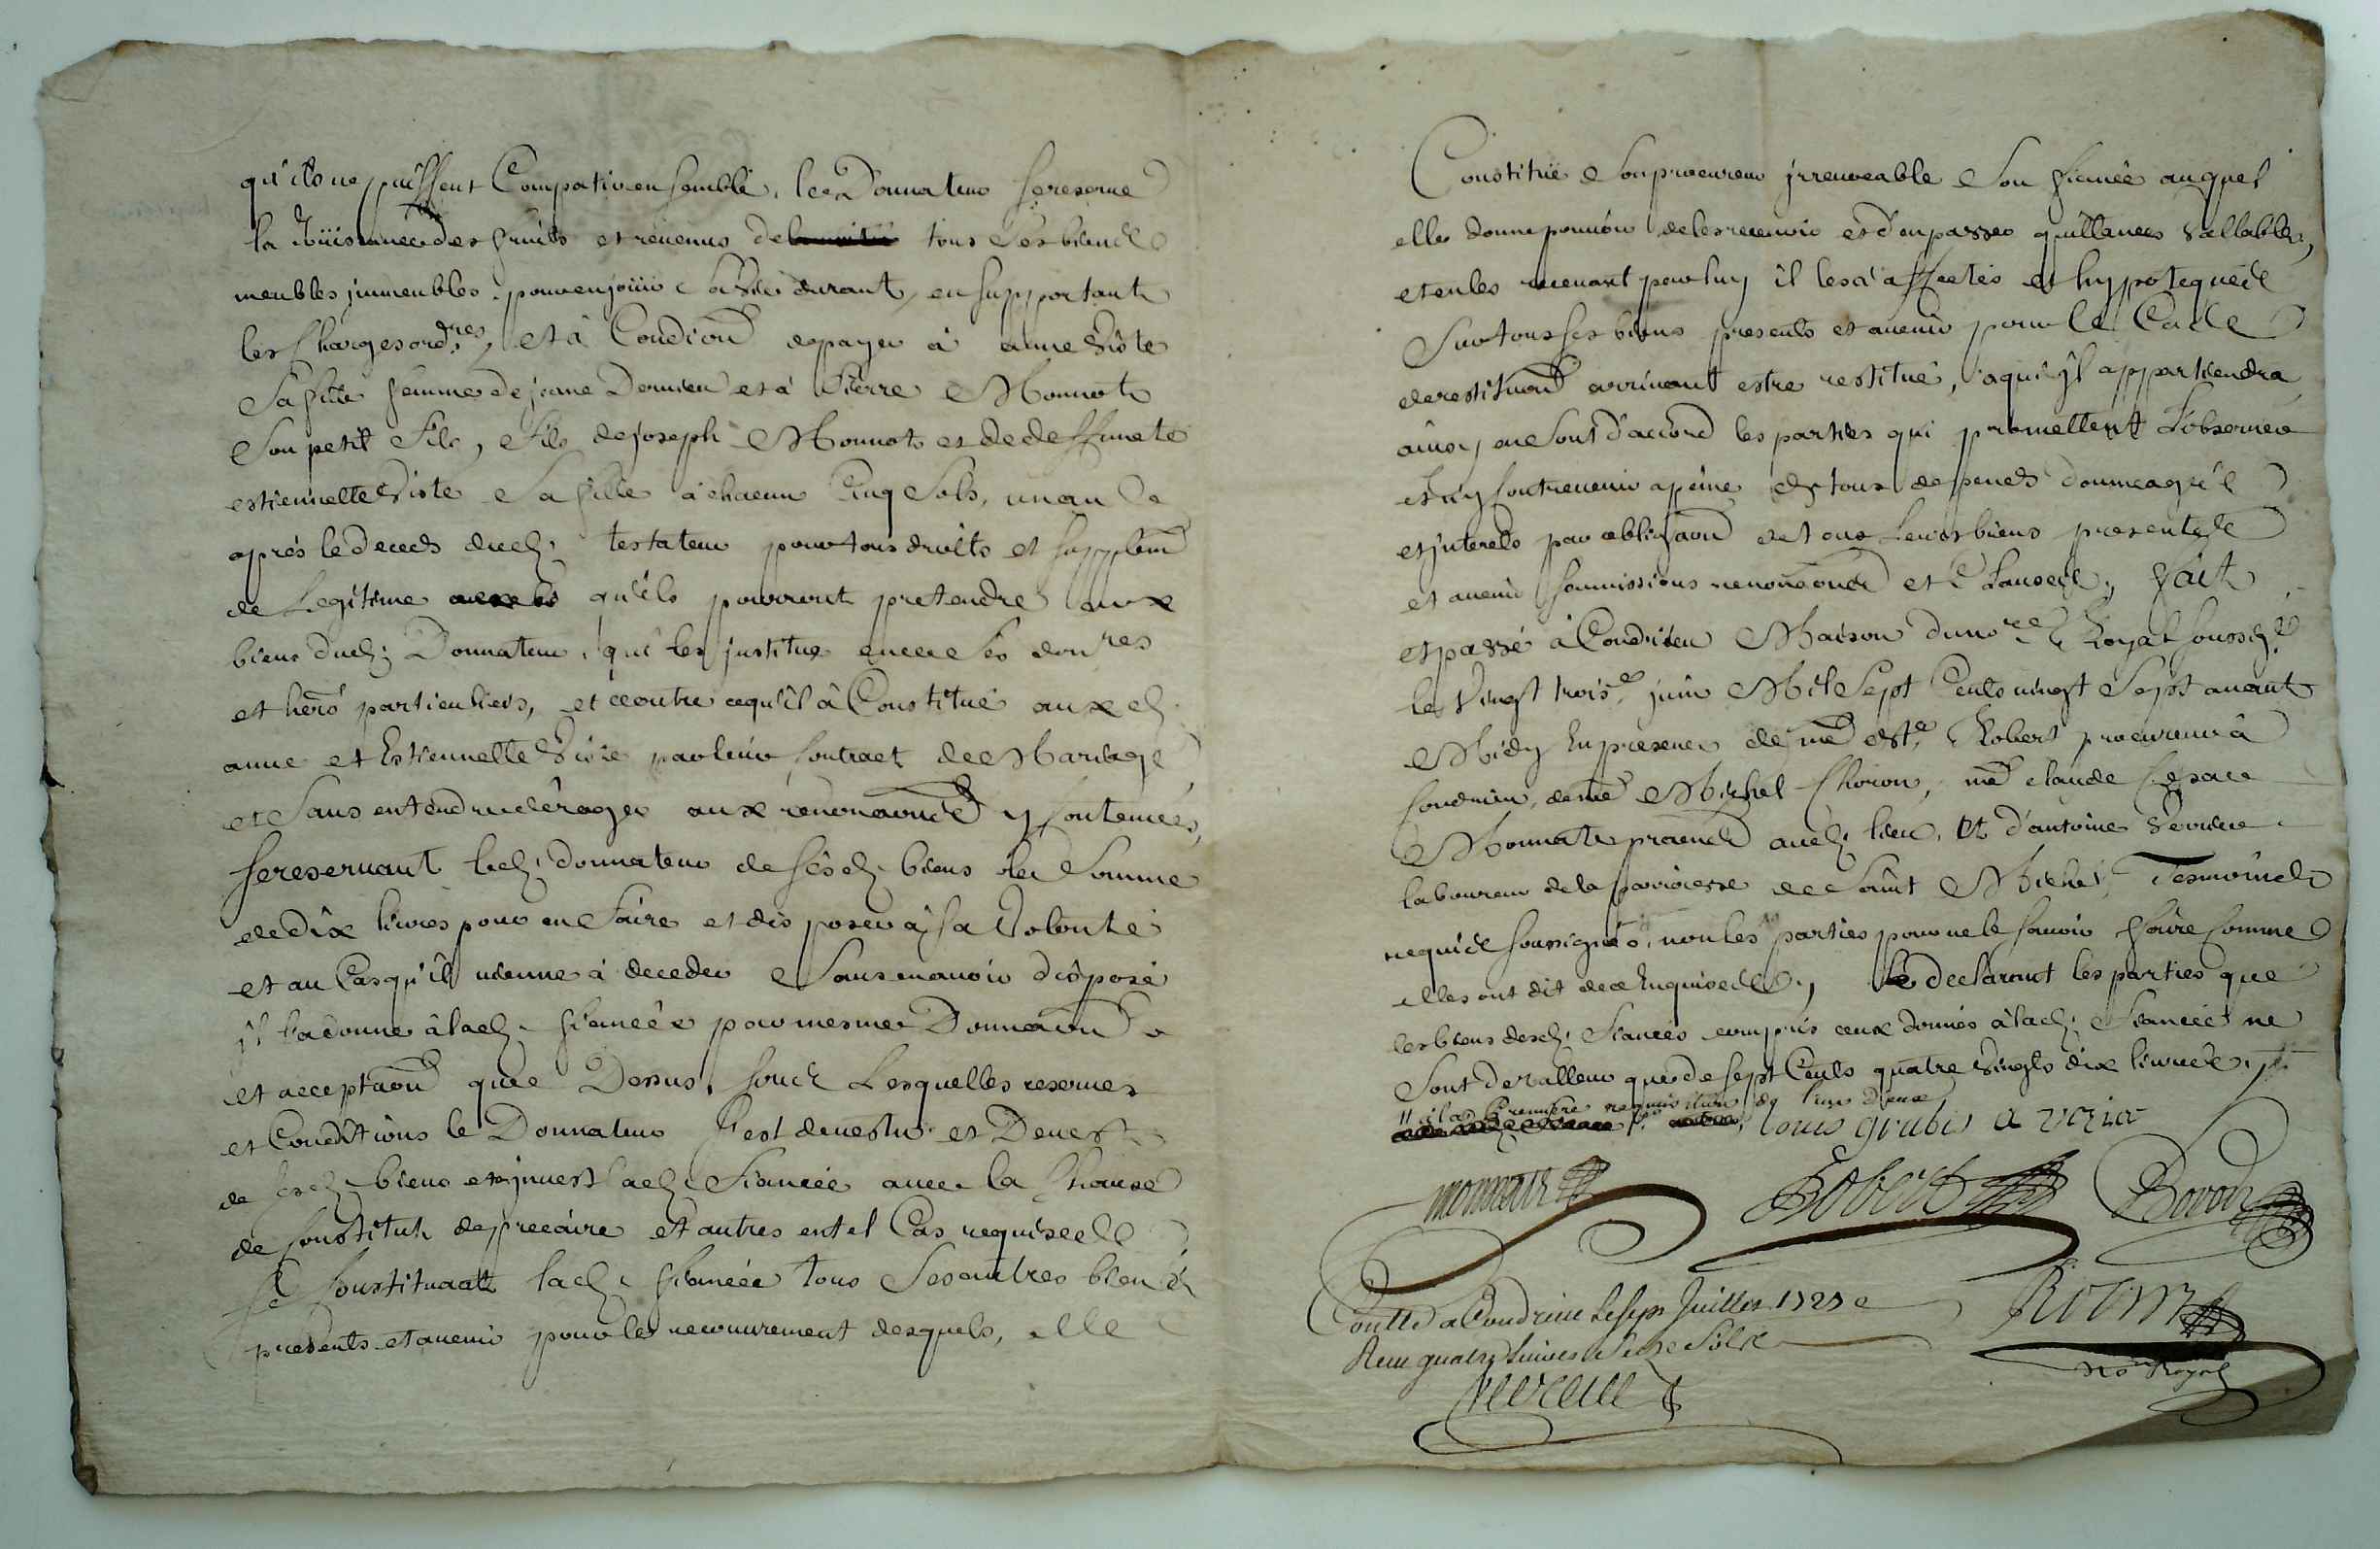 qu'ils ne puissent Compatir ensemble, le Donnateur se reserve
la Joüissance des fruits et revenus de tous ses biens
meubles jmmeubles pour en joüir sa vie durant, en supportant
les Charges ord.res, et à Condiõn de payer à anne
sa fille femme de jeane et à Pierre Monnot
son petit fils, fils de joseph Monnot et de deffuncte
estiennette sa fille à chacun Cinq Sols, un an
aprés le deceds dud. testateur pour tous droits et supplem
de Legitime qu'ils pourront pretendre aux
biens dud. Donnateur, qui les jnstitue en ce ses don.res
et hers particuliers, et ce outre ce qu'il à Constitué aux d.
anne et Estiennette par leur Contract de Mariage
et sans entendre déroger aux renonaons y Contenues,
se reservant led. donnateur de sesd. biens la Somme
de dix livres pour en faire et disposer à sa Volonté
et au Cas qu'il vienne à deceder Sans en avoir disposé
jl l'a donné à lad. fiancée par mesme Donnaõn
et acceptaõn que Dessus, sous Lesquelles reserves
et Conditions le Donnateur s'est devestu et Devest
de sesd. biens et jnvest lad. fiancée avec la Clause
de Constitut de precaire et autres en tel Cas requises
se Constituant lad. fiancée tous Ses autres biens
presents et avenir pour le recouvrement desquels, elle
Constitüe Son procureur jrrevocable Son fiancé auquel
elle donne pouvoir de les recevoir et d'en passer quittances vallables,
et en les recevant par luy il les a affectés et hypotequés
Sur tous ses biens presents et avenir pour le Cas de
de restituaõn arrivant estre restitué, à qui jl appartiendra
ainsy en sont d'accord les parties qui promettent L'observer
et n'y Contrevenir a peine de tous depends dommages
et jnterets par obligaõn de tous Leurs biens presents
et avenir soumissions renonaõns et Clauses, fait
et passé à Condrieu Maison du no.re Royal soussig.é
le Vingt trois.e juin Mil Sept Cents vingt Sept avant
Midy En presence de me Robert procureur à
Condrieu, de me Michel Choron, me claude Cesar
Monnate praticien aud. lieu, et d'antoine Verrier
laboureur de la parroisse de Saint Michel, Tesmoins
requis soussignés, non les parties pour ne le sçavoir faire comme
elles ont dit de ce Enquises, declarant les parties que
les biens desd. fiancés compris ceux donnés à lad. fiancée ne
Sont de valleur que de sept Cents quatre Vingts dix livres
à la premiere requisition de l'un d'eux louis grubis a veria
monnate Robert
Contlé a Condrieu le sept Juillet 1727
Receu quatre livres seize sols
no Royal